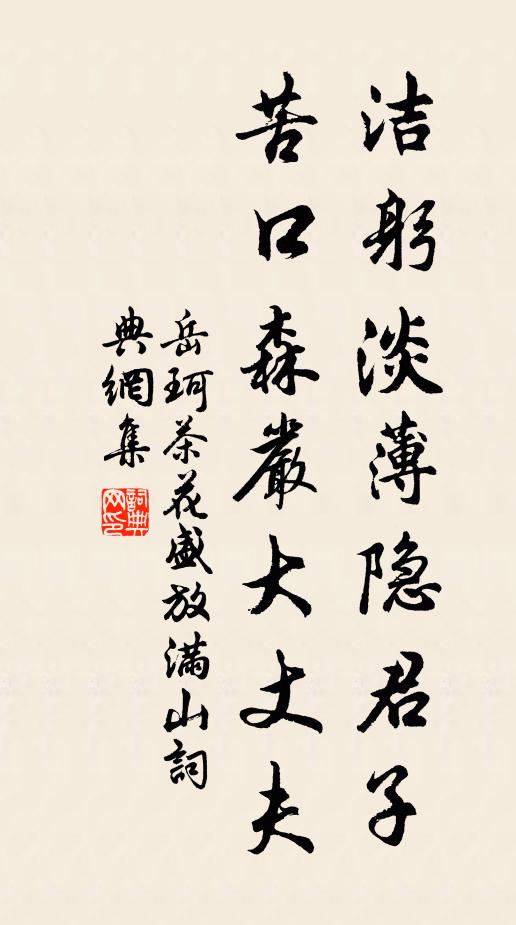 洁躬淡薄隐君子
苦口森嚴大丈夫
岳珂茶花盛放满山詞
典網集
詞典网印